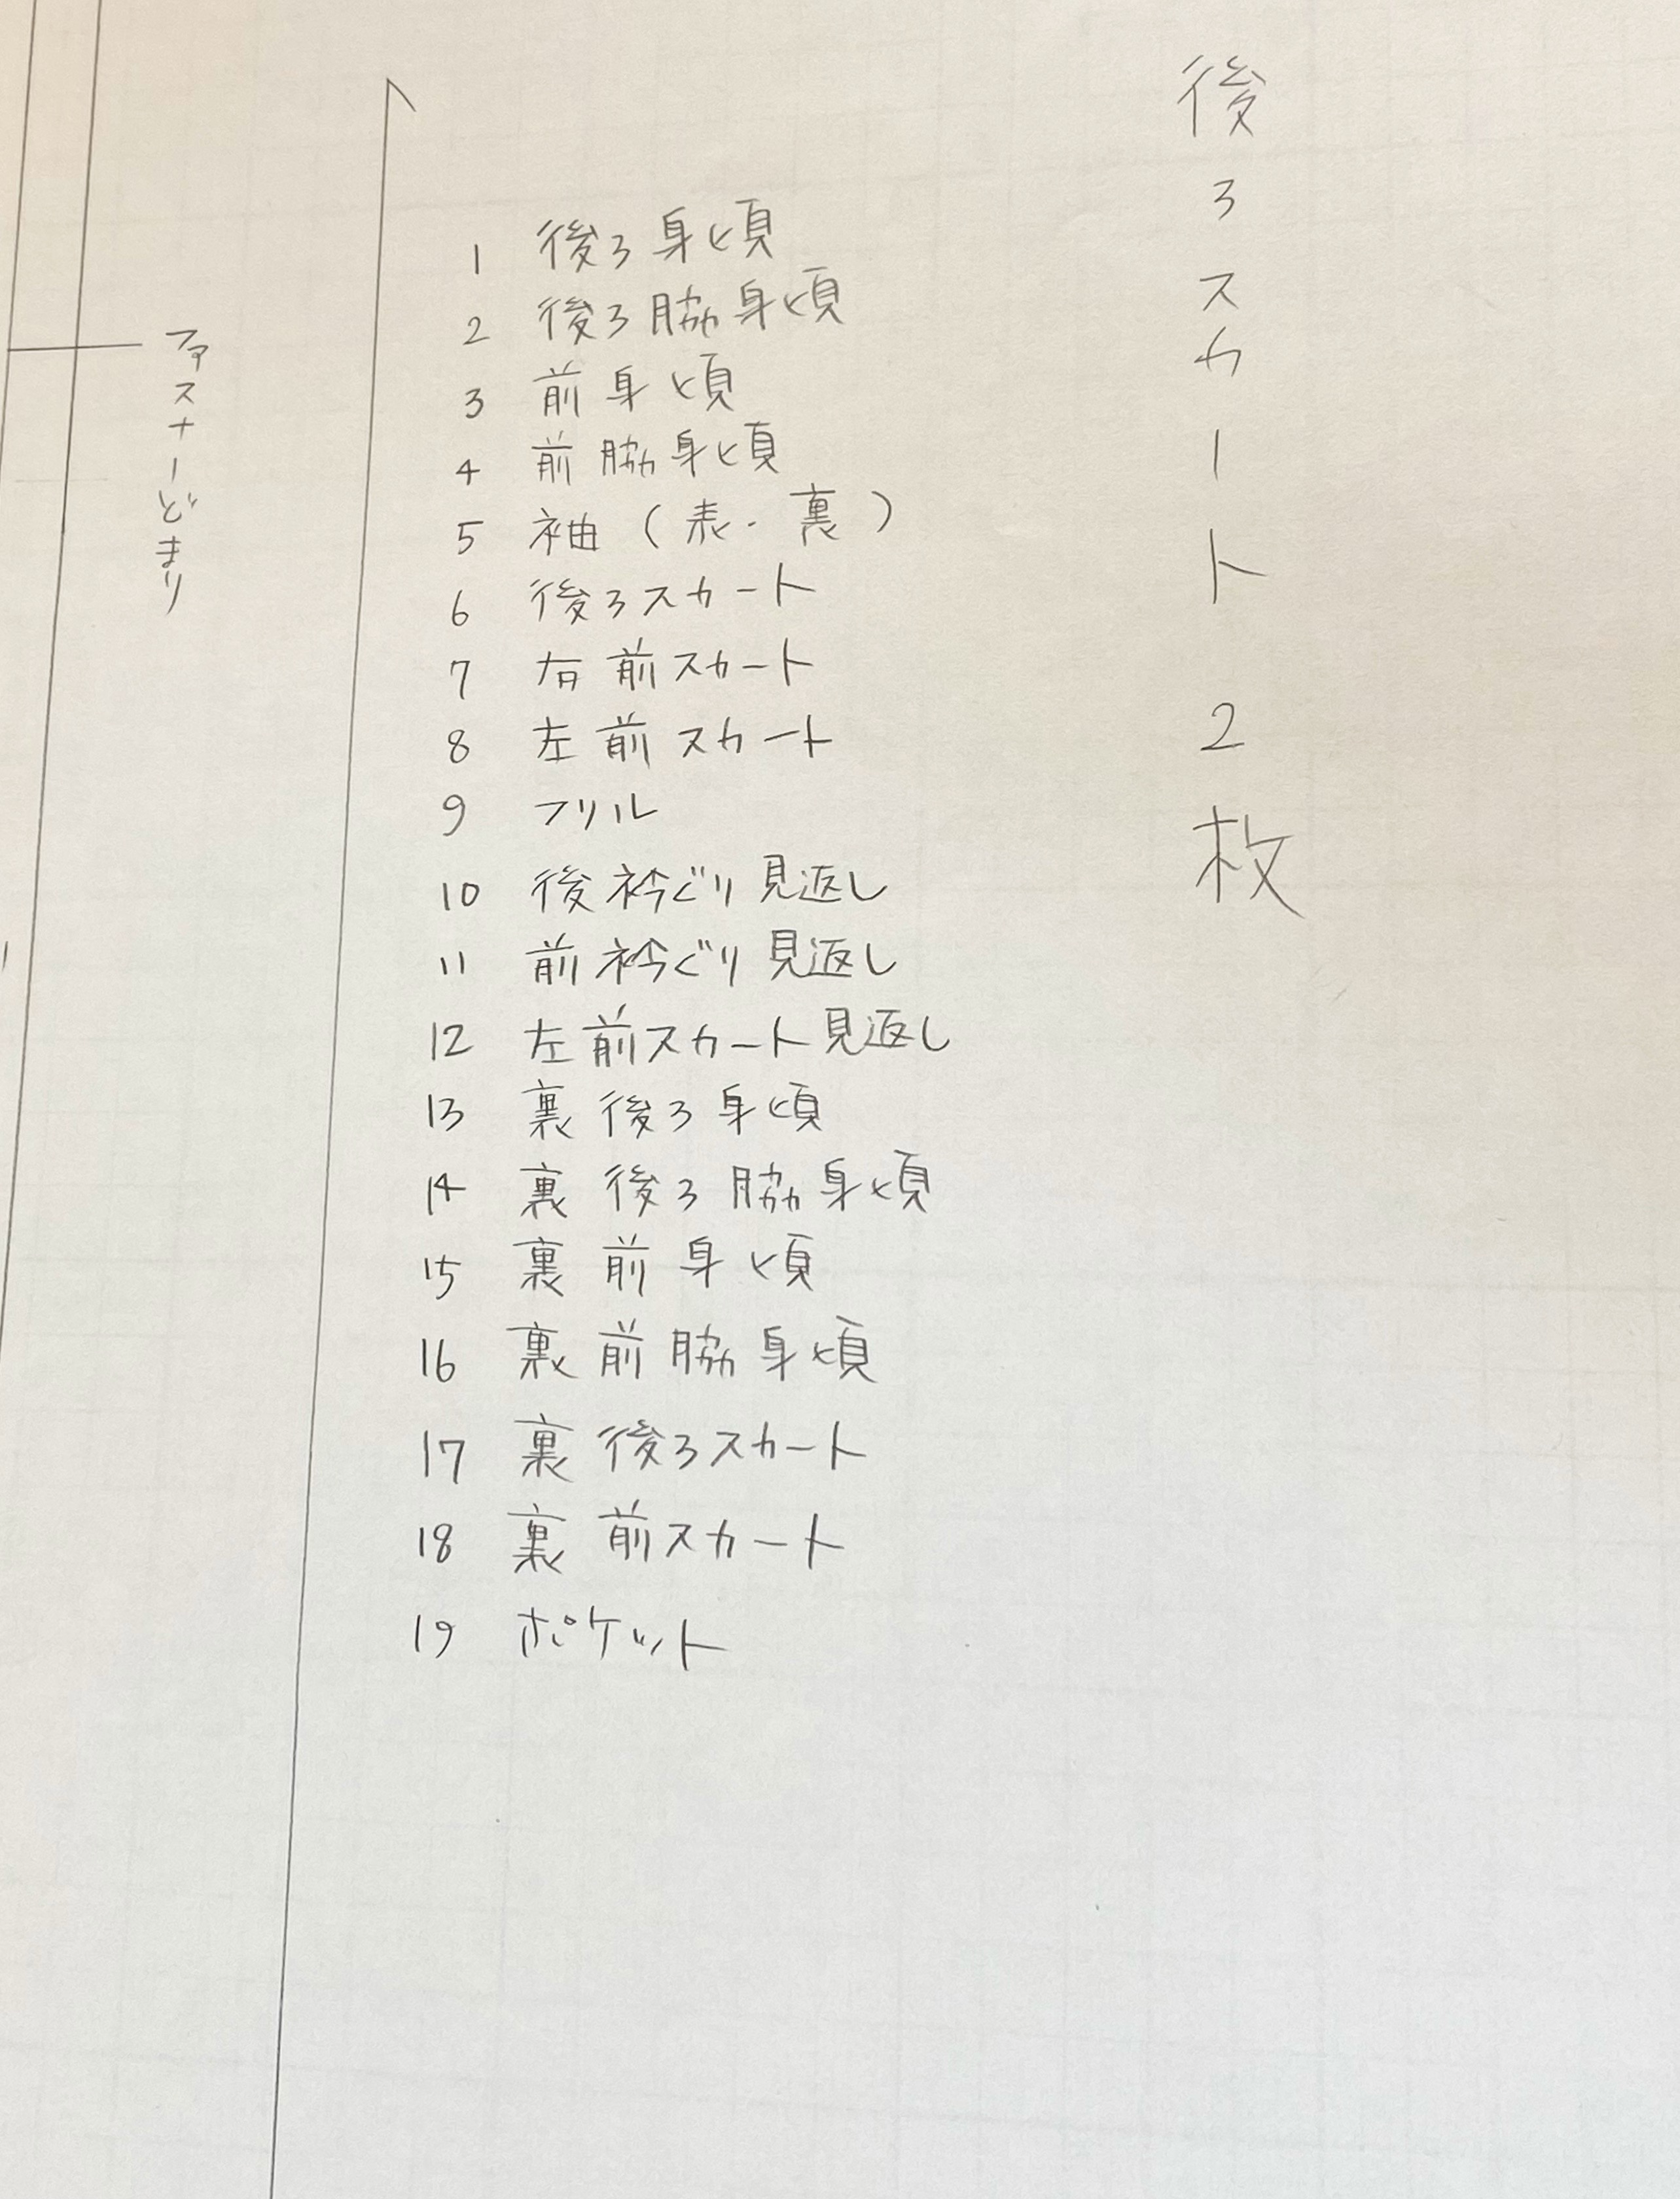 後ろスカート 2枚
ファスナーどまり
1 後ろ身頃
2 後ろ脇身頃
3 前身頃
4 前脇身頃
5 袖(表・裏)
6 後ろスカート
7 右前スカート
8 左前スカート
9 フリル
10 後衿ぐり見返し
11 前衿ぐり見返し
12 左前スカート見返し
13 裏後ろ身頃
14 裏後ろ脇身頃
15 裏前身頃
16 裏前脇身頃
17 裏後ろスカート
18 裏前スカート
19 ポケット